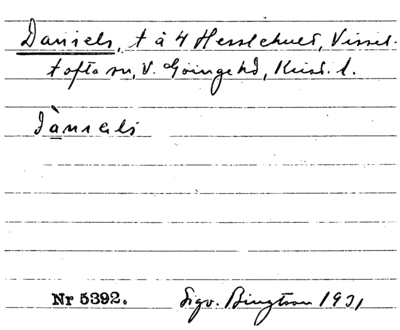 Daniels, t å 4 Hesslehult, Vissel-
tofta sn, V. Göinge hd, Krist. l.
dàniels
Nr 5392. Sigv. Bengtsson 1931